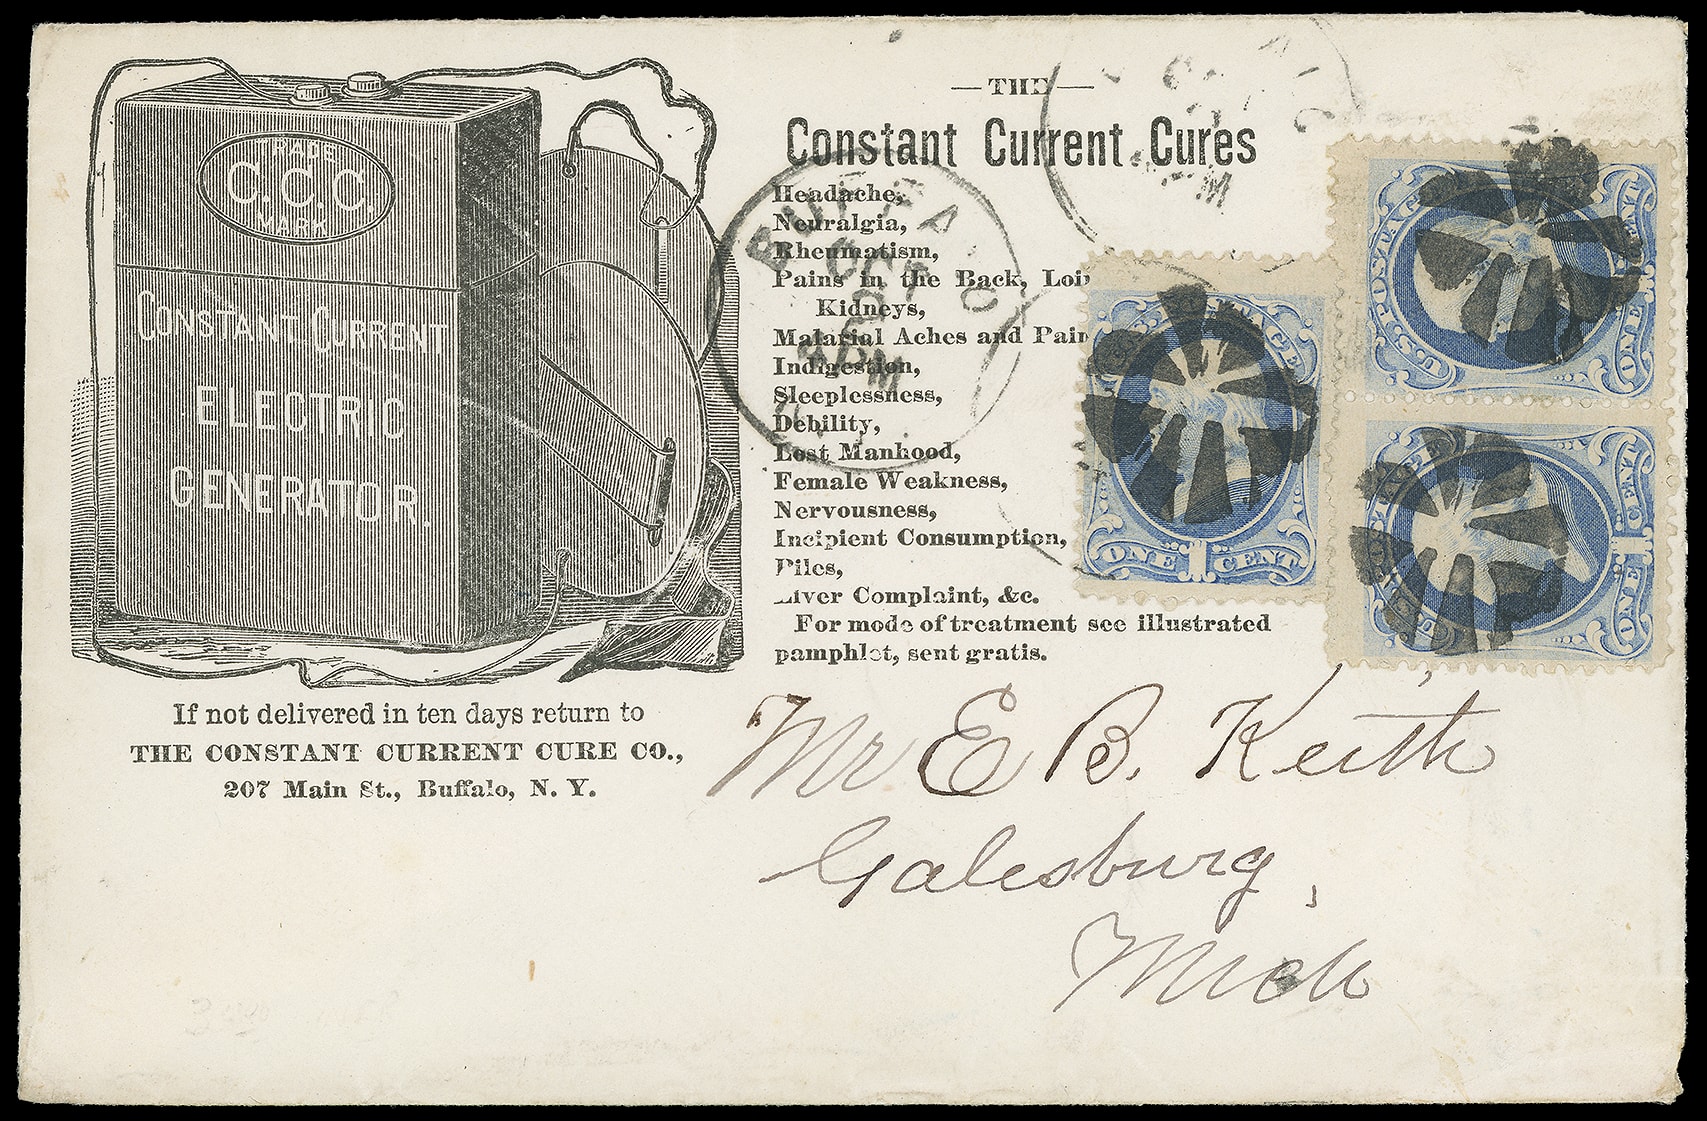 TRADE
C.C.C.
MARK
CONSTANT CURRENT
ELECTRIC
GENERATOR.
If not delivered in ten days return to
THE CONSTANT CURRENT CURE CO.,
207 Main St., Buffalo, N. Y.
—THE—
Constant Current Cures
Headache,
Neuralgia,
Rheumatism,
Pains in the Back,
Kidneys,
Malarial Aches and
Indigestion,
Sleeplessness,
Debility,
Lost Manhood,
Female Weakness,
Nervousness,
Incipient Consumption,
Piles,
Liver Complaint, &c.
For mode of treatment see illustrated
pamphlet, sent gratis.
BUFFALO
OCT
6 PM
ONE 1 CENT
U.S. POSTAGE
ONE CENT
ONE 1 CENT
Mr E B. Keith
Galesburg,
Mich